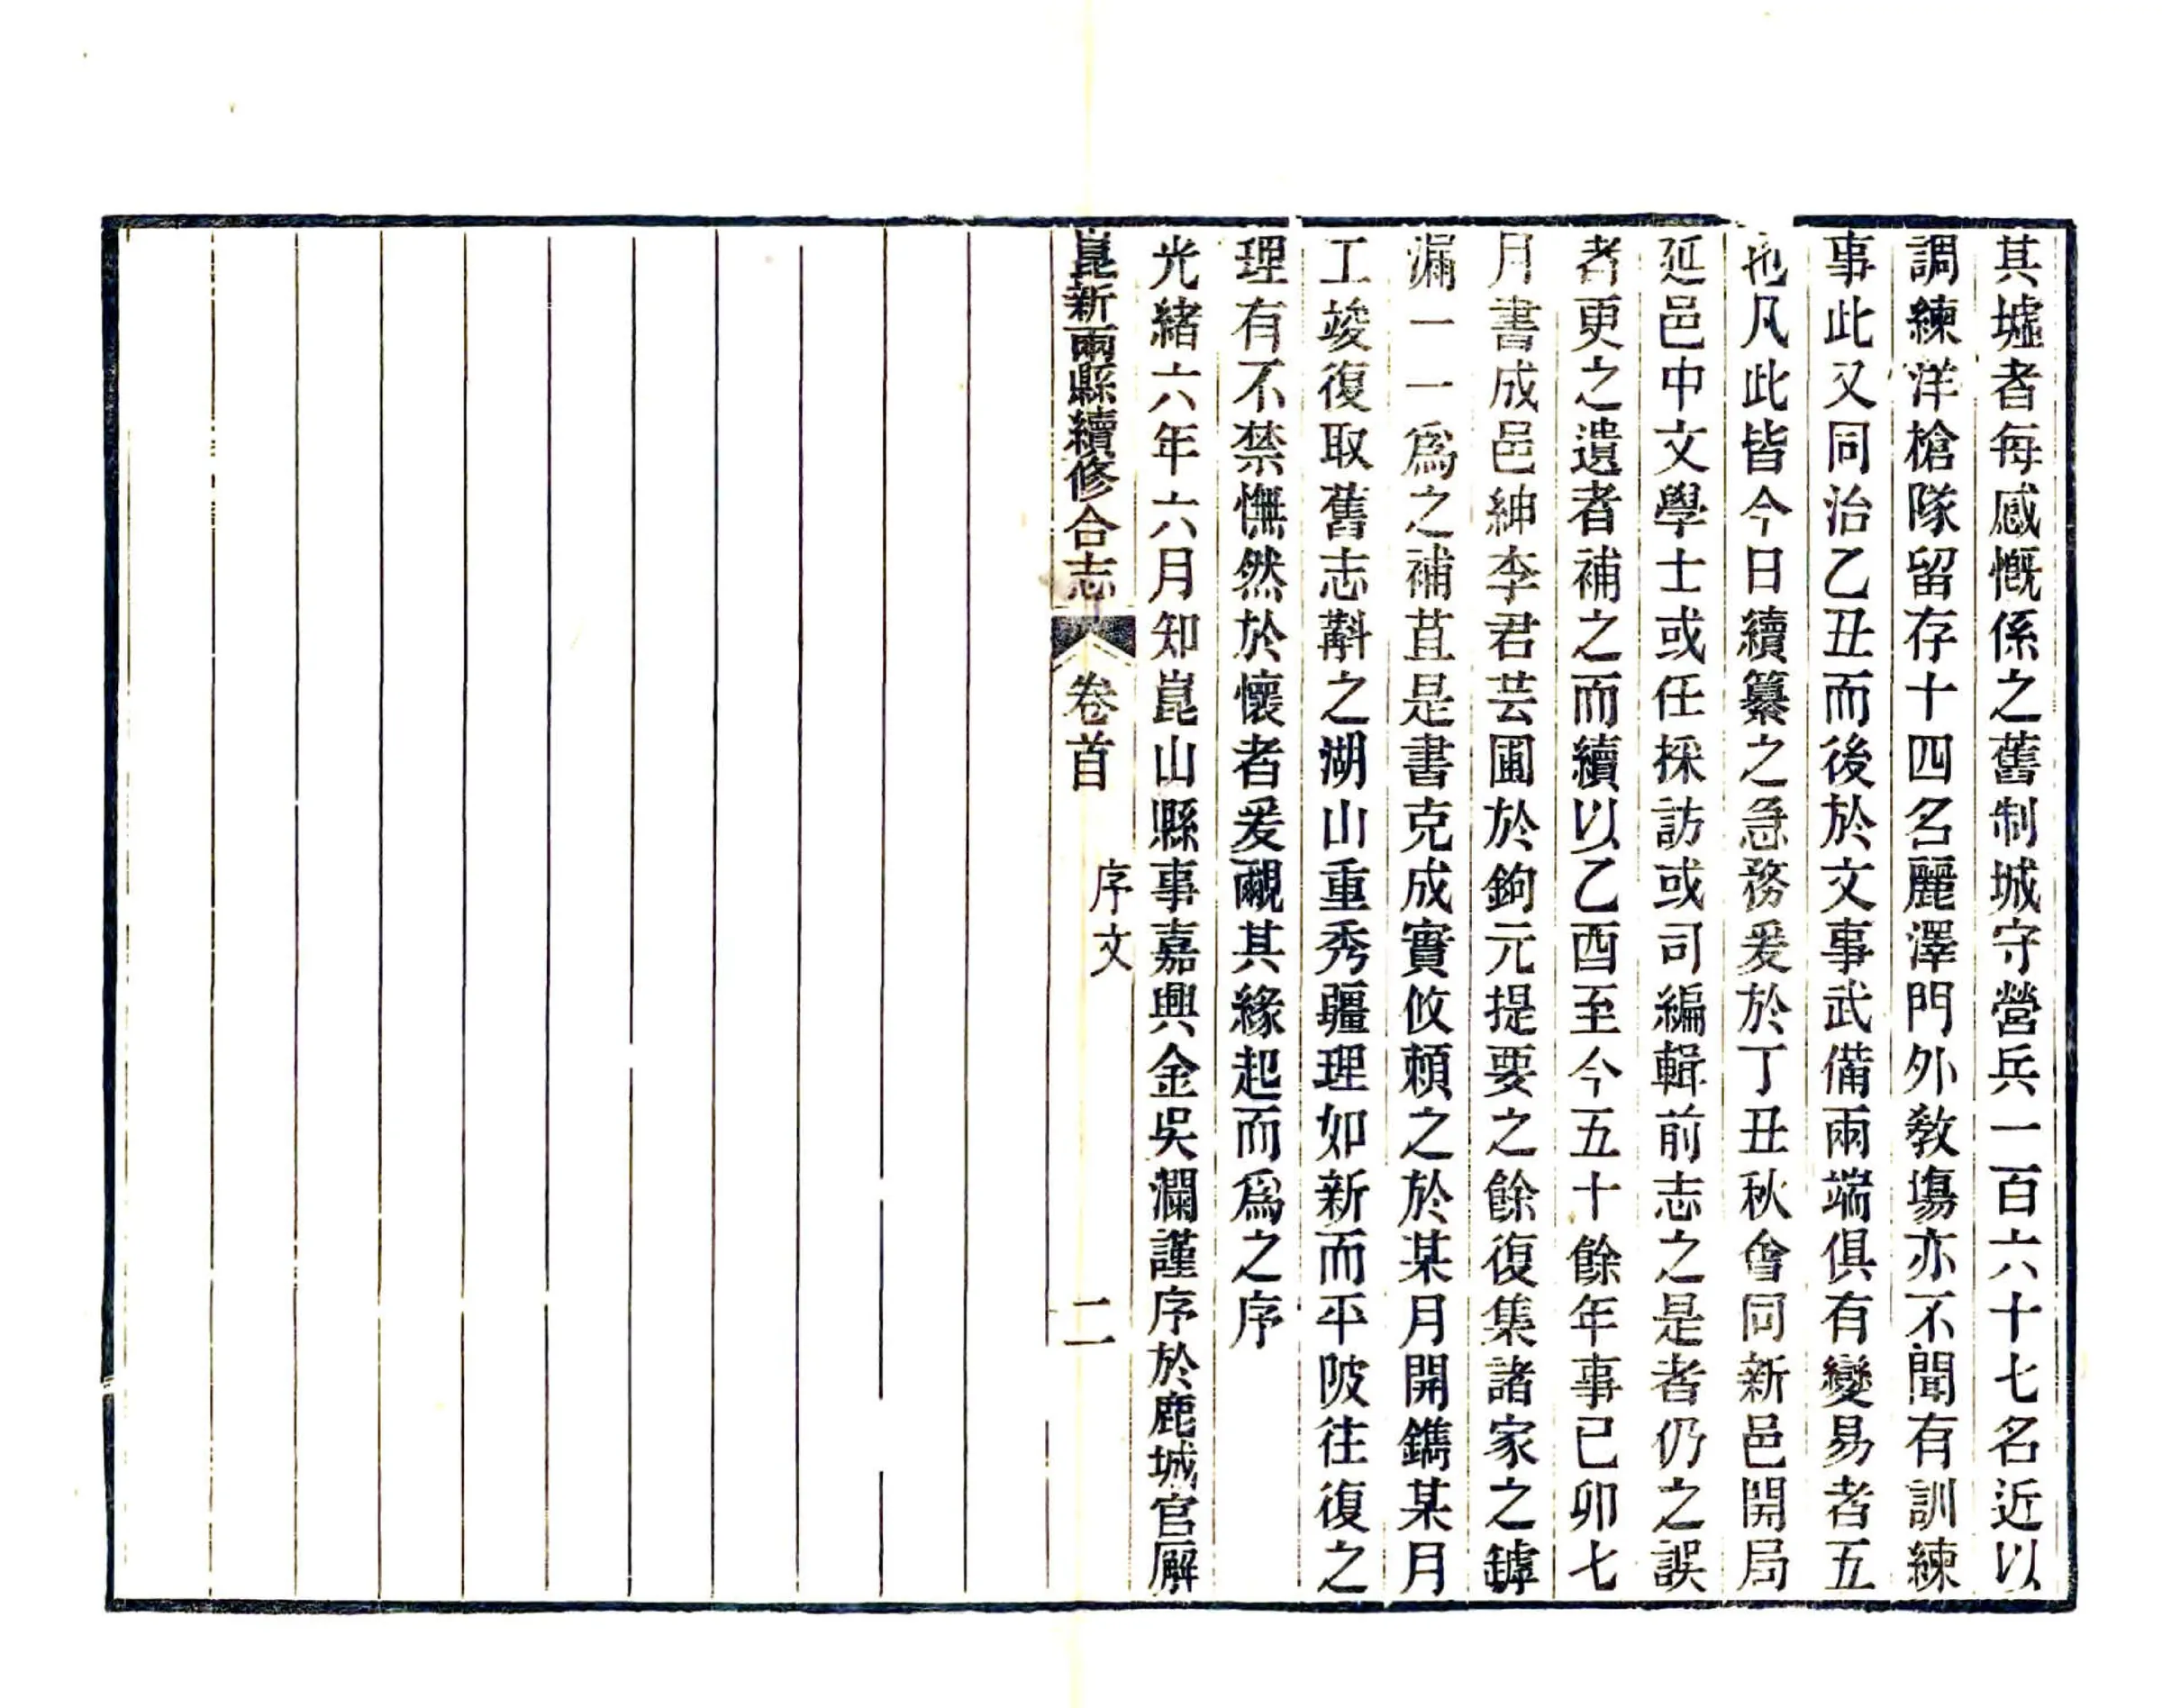 其墟者每感慨係之舊制城守營兵一百六十七名近以
調練洋槍隊留存十四名麗澤門外敎塲亦不聞有訓練
事此又同治乙丑而後於文事武備兩端俱有變易者五
也凡此皆今日續纂之急務爰於丁丑秋會同新邑開局
延邑中文學士或任採訪或司編輯前志之是者仍之誤
者更之遺者補之而續以乙酉至今五十餘年事己卯七
月書成邑紳李君芸圃於鉤元提要之餘復集諸家之罅
漏一一爲之補苴是書克成實攸賴之於某月開鐫某月
工竣復取舊志斠之湖山重秀疆理如新而平陂往復之
理有不禁憮然於懷者爰覼其緣起而爲之序
光緖六年六月知崑山縣事嘉興金吳瀾謹序於鹿城官廨
崑新兩縣續修合志 卷首 序文 二